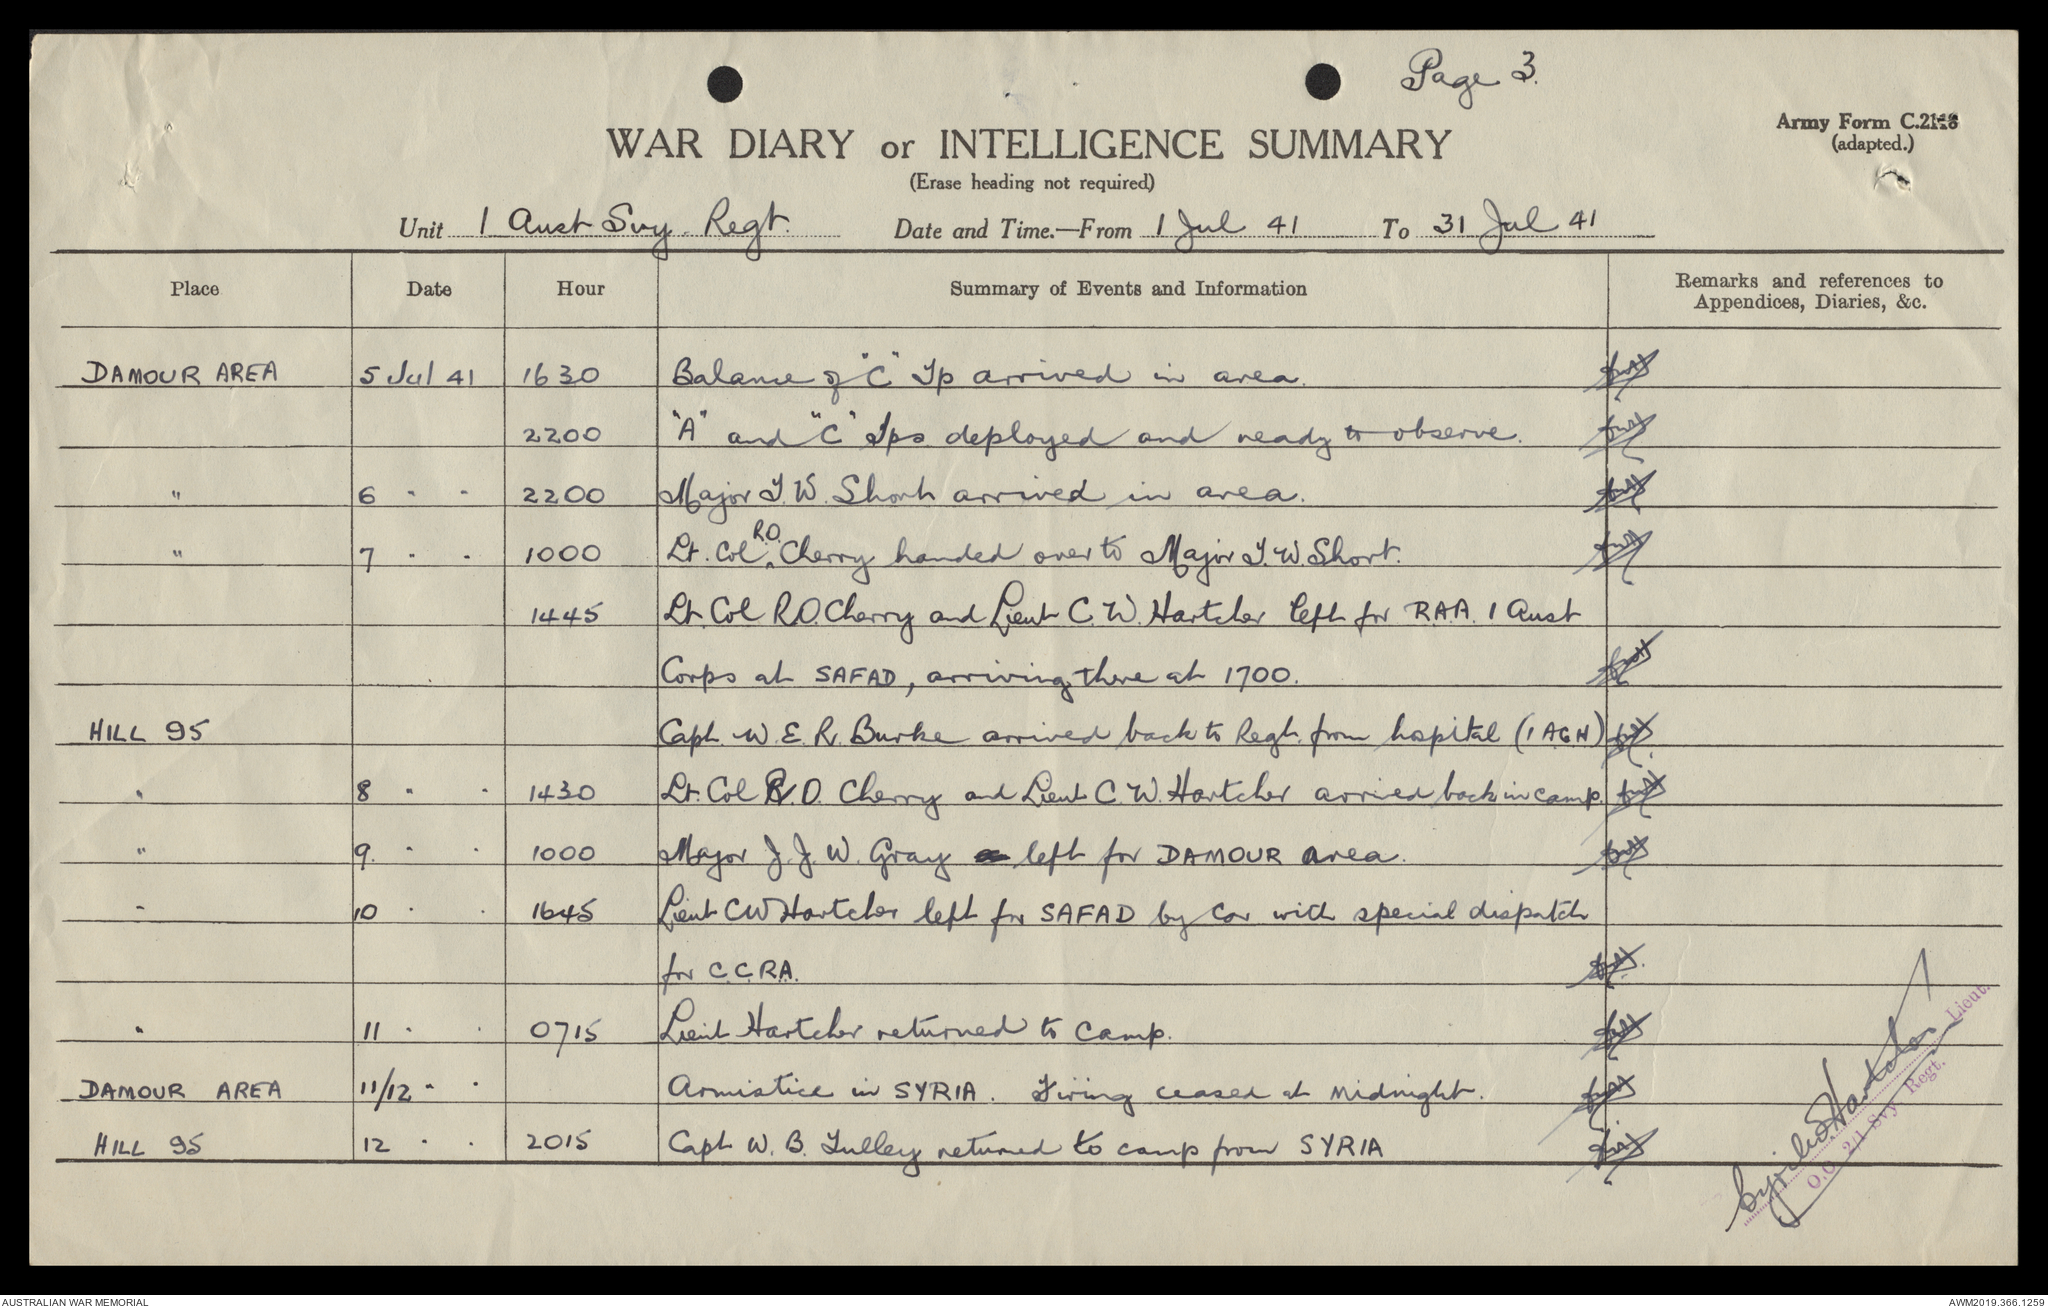 Page 3.
Army Form C.2118
(adapted.)
WAR DIARY or INTELLIGENCE SUMMARY
(Erase heading not required)
Unit 1 Aust Svy Regt. Date and Time.—From 1 Jul 41 To 31 Jul 41
Place Date Hour Summary of Events and Information Remarks and references to
Appendices, Diaries, &c.
DAMOUR AREA 5 Jul 41 1630 Balance of "C" Tp arrived in area.
2200 "A" and "C" Tps deployed and ready to observe.
" 6 " " 2200 Major T.W. Short arrived in area.
" 7 " " 1000 Lt. Col R.O. Cherry handed over to Major T.W. Short.
1445 Lt. Col R.O. Cherry and Lieut C.W. Hartcher left for R.A.A. 1 Aust
Corps at SAFAD, arriving there at 1700.
HILL 95 Capt. W.E.R. Burke arrived back to Regt. from hospital (1 AGH)
" 8 " " 1430 Lt. Col R.O. Cherry and Lieut C.W. Hartcher arrived back in camp.
" 9 " " 1000 Major J.J.W. Gray left for DAMOUR area.
" 10 " " 1645 Lieut CW Hartcher left for SAFAD by car with special dispatch
for C.C.R.A.
" 11 " " 0715 Lieut Hartcher returned to camp.
DAMOUR AREA 11/12 " " Armistice in SYRIA. Firing ceased at midnight.
HILL 95 12 " " 2015 Capt W.B. Tulley returned to camp from SYRIA
Cyril W Hartcher Lieut.
O.C. 2/1 Svy. Regt.
AUSTRALIAN WAR MEMORIAL
AWM2019.366.1259